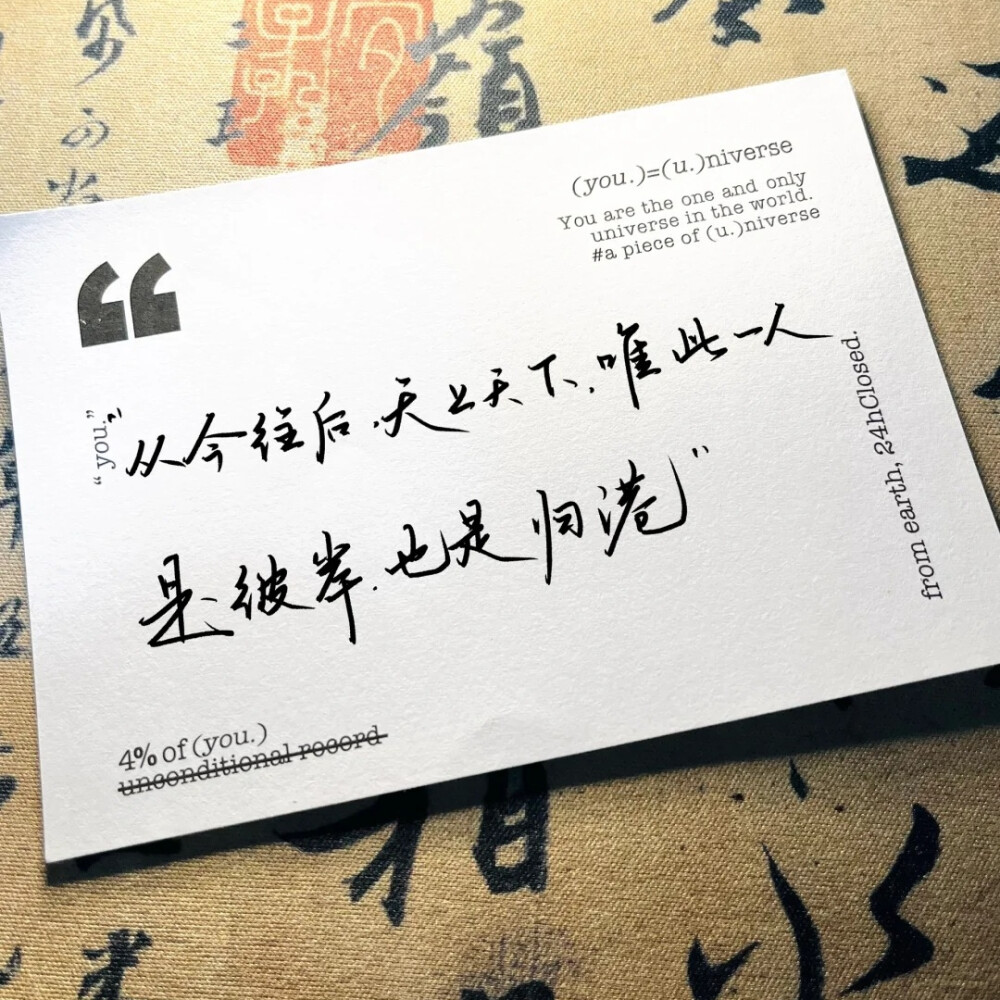 (you.)=(u.)niverse
You are the one and only
universe in the world.
#a piece of (u.)niverse
“
“you.”
"从今往后,天上天下,唯此一人
是彼岸,也是归港"
from earth, 24hClosed.
4% of (you.)
unconditional record
嶺
相